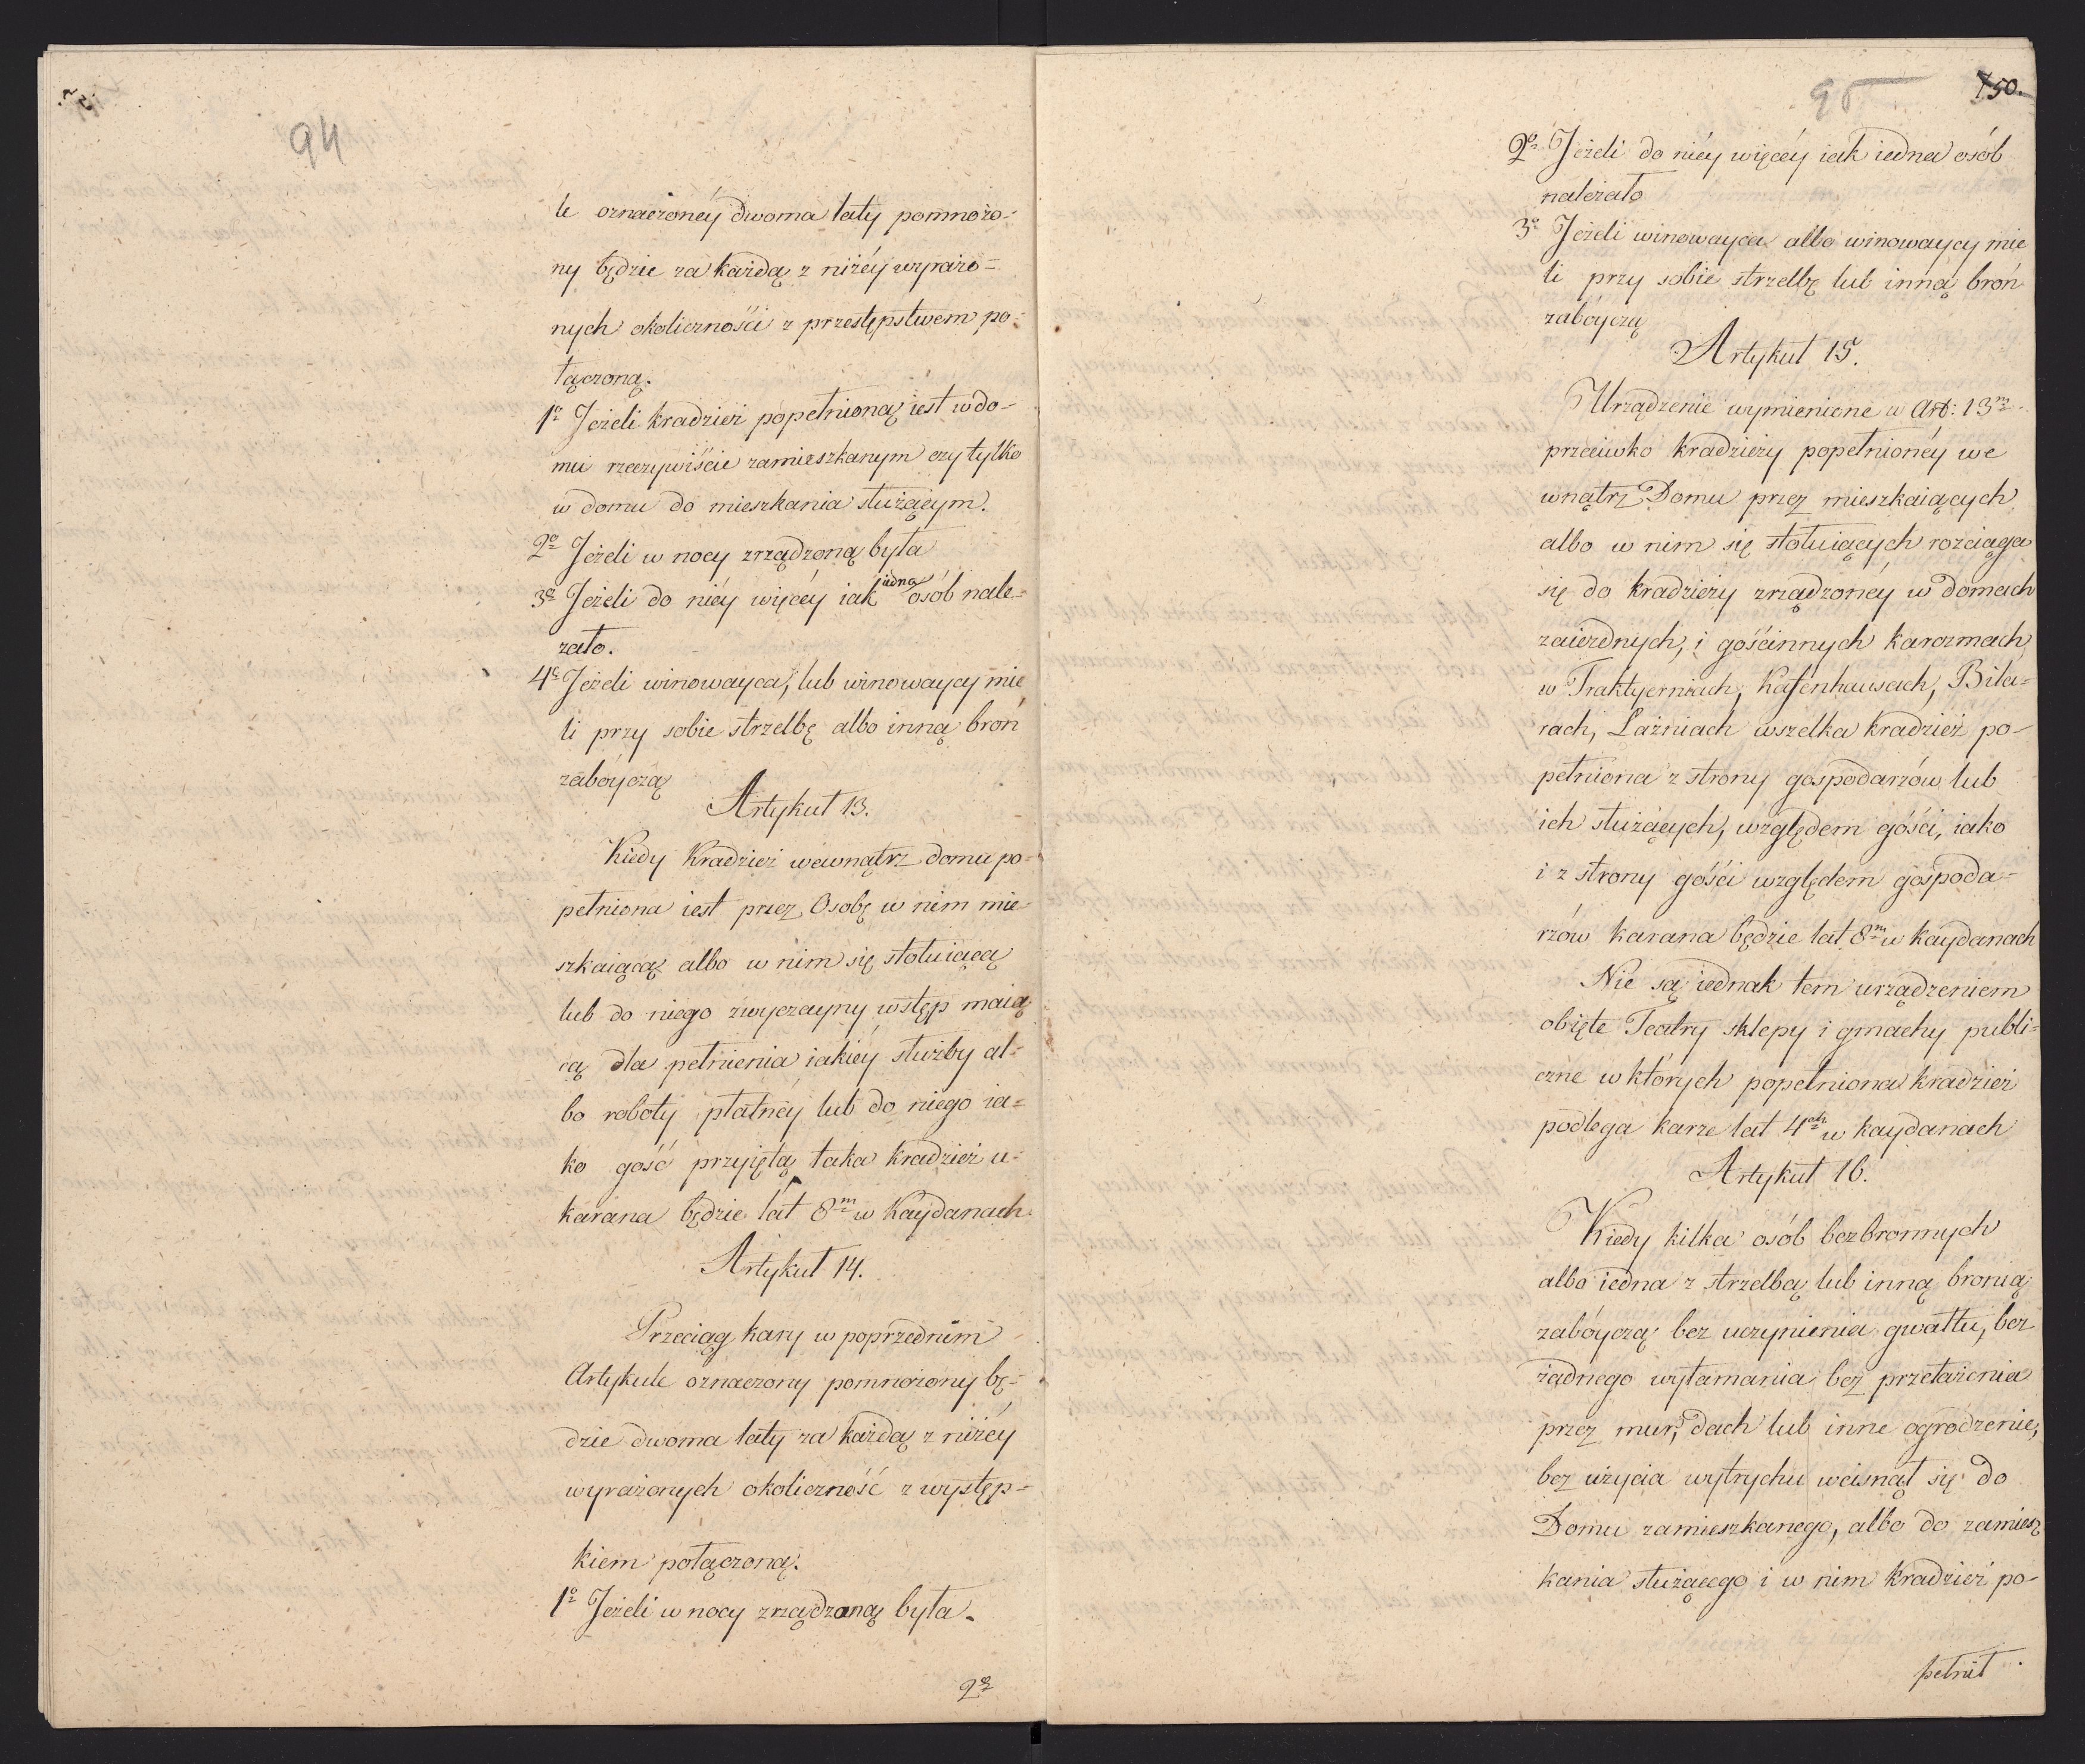 94
le oznaczonéy dwoma laty pomnożo-
ny będzie za każdą z niżéy wyrażo-
nych okoliczności z przestępstwem po-
łączoną.
1º Jeżeli kradzież popełnioną iest w do-
mu rzeczywiście zamieszkanym czy tylko
w domu do mieszkania służącym.
2º Jeżeli w nocy zrządzoną była
3º Jeżeli do niéy więcéy iak iedna osób nale-
żało.
4º Jeżeli winowayca, lub winowaycy mie
li przy sobie strzelbę albo inną broń
zabóyczą
Artykuł 13.
Kiedy Kradzież wewnątrz domu po-
pełniona iest przez Osobę w nim mie-
szkaiącą albo w nim się stołuiącą
lub do niego zwyczayny wstęp maią
cą dla pełnienia iakiéy służby al-
bo roboty płatnéy lub do niego ia-
ko gość przyiętą taka kradzież u-
karana będzie lat 8m w Kaydanach
Artykuł 14.
Przeciąg kary w poprzednim
Artykule oznaczony pomnożony bę-
dzie dwoma laty za każdą z niżéy
wyrażonych okoliczność z występ-
kiem połączoną.
1º Jeżeli w nocy zrządzoną była.
2º
95
50.
2º Jeżeli do niéy więcéy iak iedna osób
należało
3º Jeżeli winowayca albo winowaycy mie
li przy sobie strzelbę lub inną broń
zabóyczą
Artykuł 15.
Urządzenie wymienione w Art: 13m
przeciwko kradzieży popełnionéy we
wnątrz Domu przez mieszkaiących
albo w nim się stołuiących rozciąga
się do kradzieży zrządzonéy w domach
zaiezdnych, i gościnnych karczmach
w Traktyerniach, Kafenhausach, Bila-
rach, Łaźniach wszelka kradzież po-
pełniona z strony gospodarzów lub
ich służących, względem gości, iako
i z strony gości względem gospoda-
rzów karana będzie lat 8m w kaydanach
Nie są iednak tem urządzeniem
obięte Teatry sklepy i gmachy publi-
czne w których popełniona kradzież
podlega karze lat 4ch w kaydanach
Artykuł 16.
Kiedy kilka osób bezbronnych
albo iedna z strzelbą lub inną bronią
zabóyczą bez uczynienia gwałtu, bez
żadnego wyłamania bez przełażenia
przez mur, dach lub inne ogrodzenie,
bez użycia wytrychu wcisnął się do
Domu zamieszkanego, albo do zamiesz
kania służącego i w nim kradzież po-
pełnił